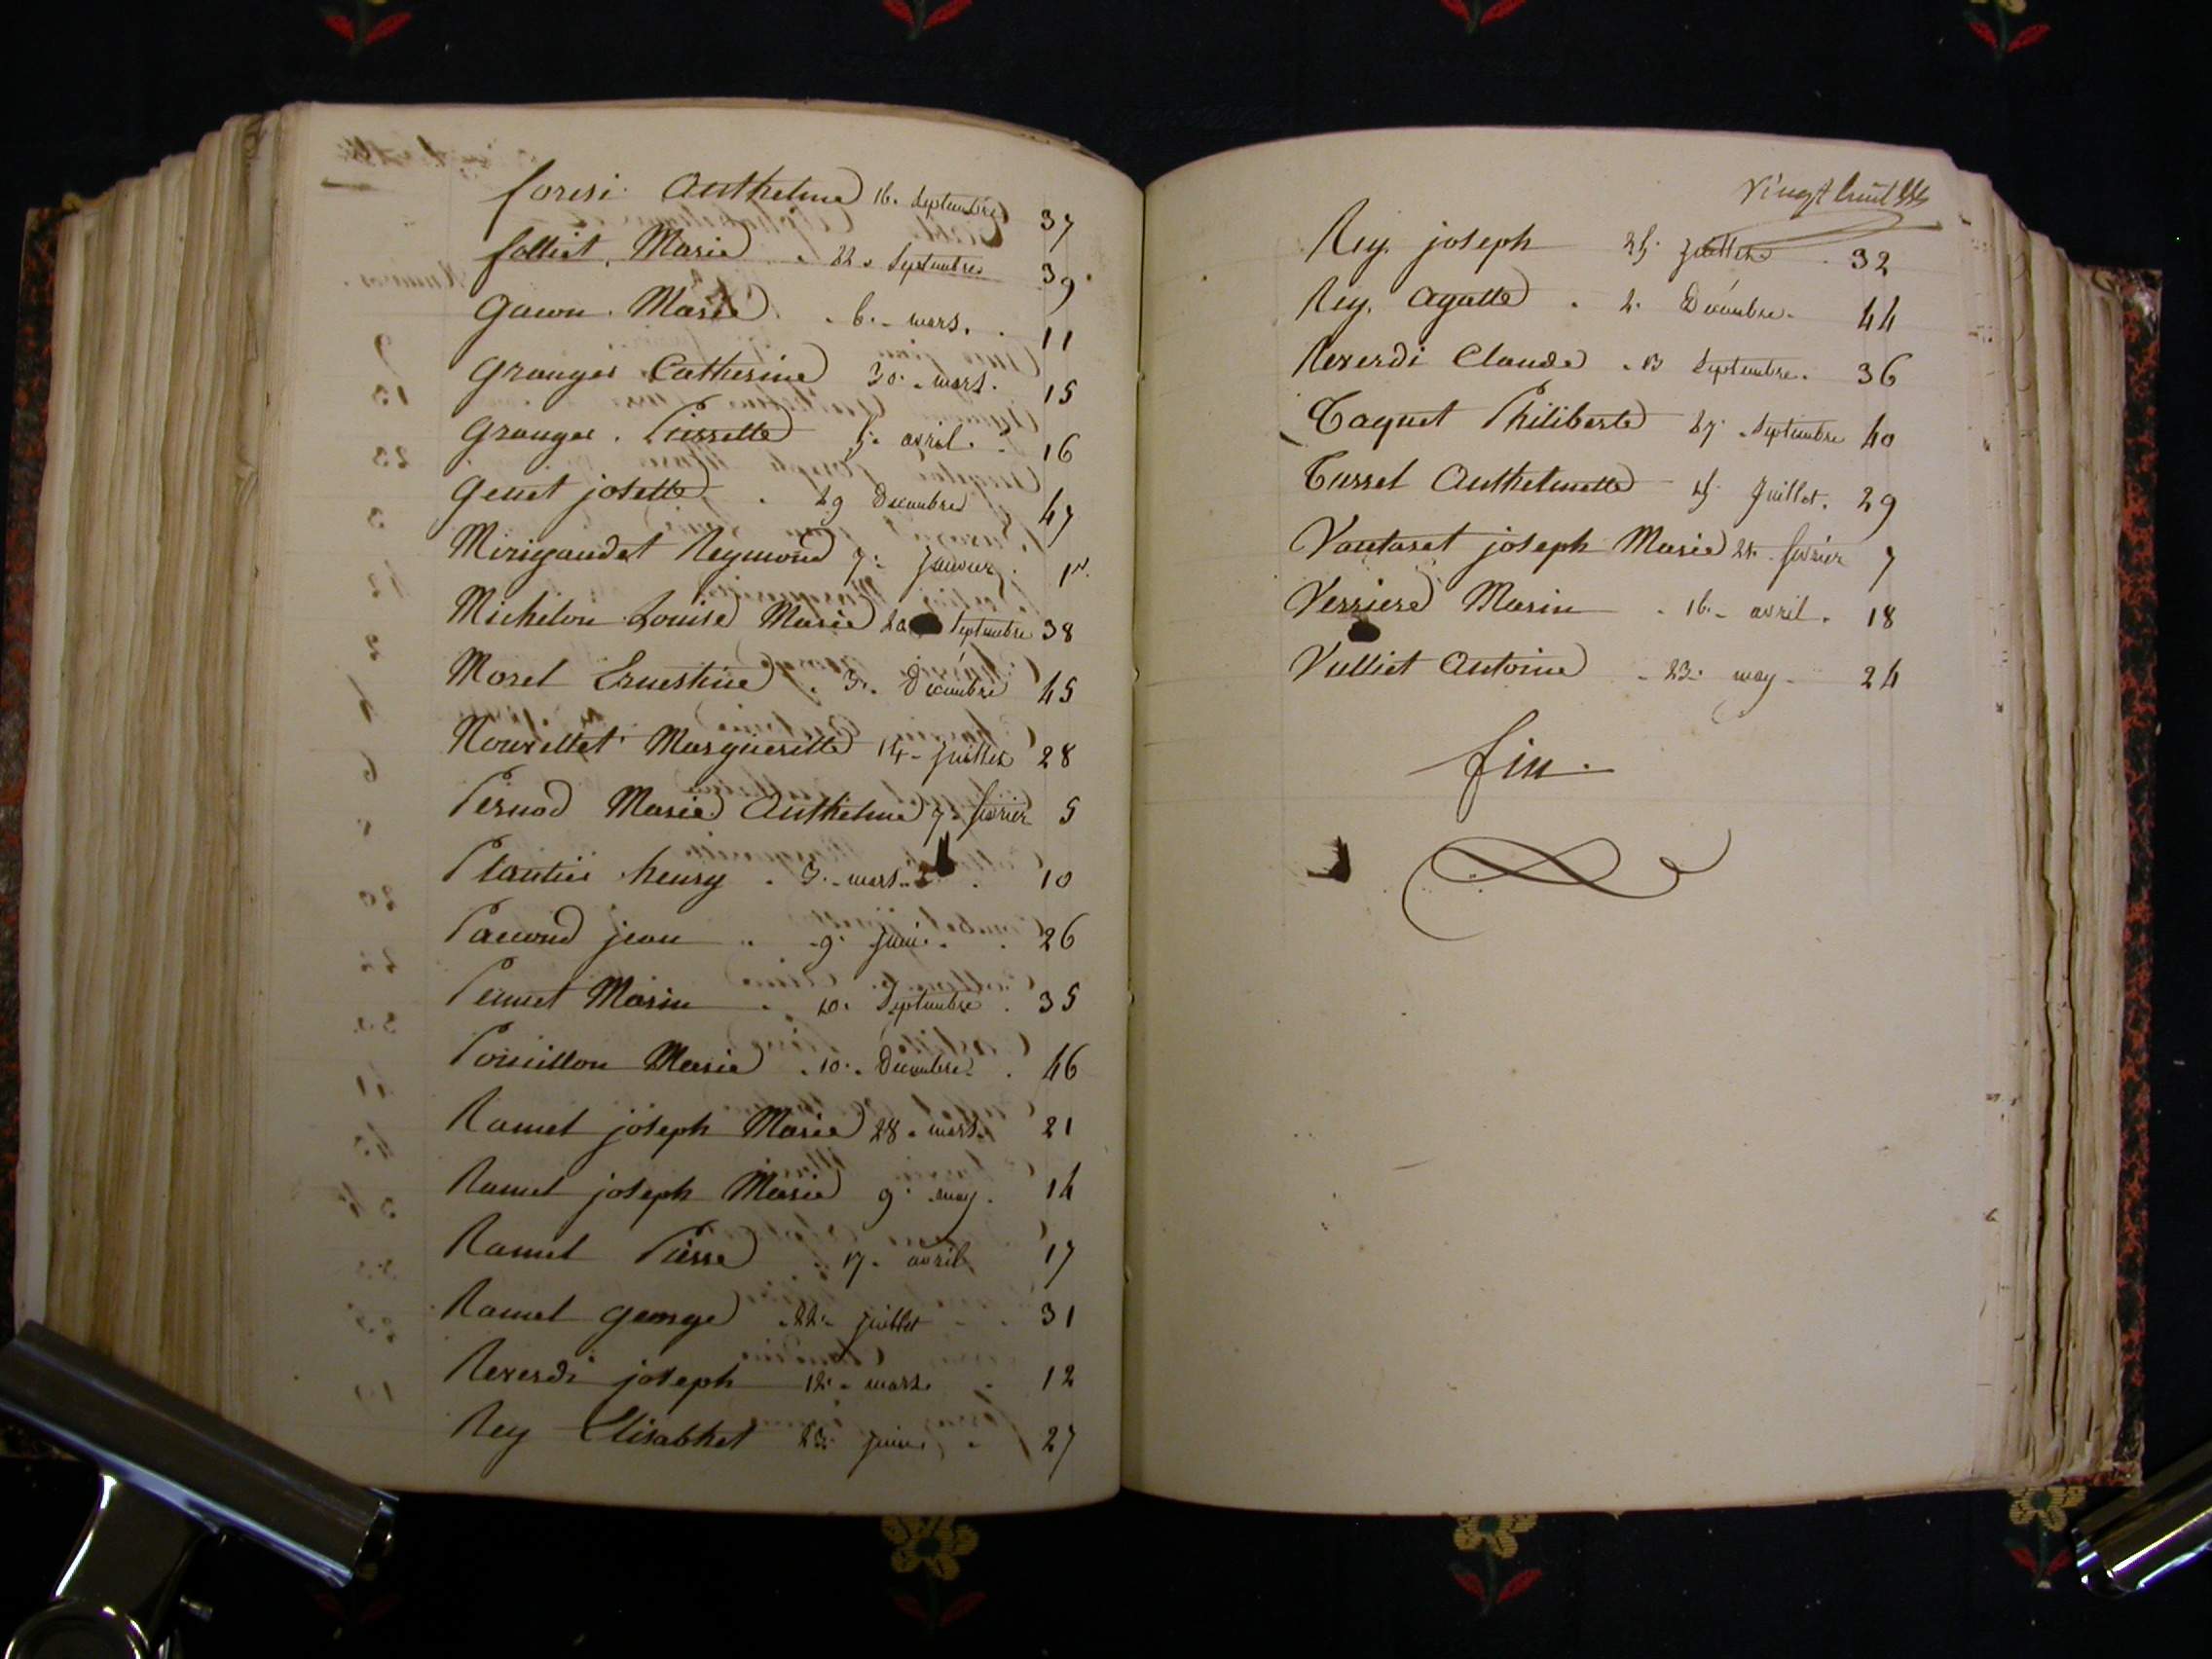 foresi Anthelme 16. Septembre 37
folliet, Marie 22. Septembre 39
Gacon Marie 6. mars. 11
Granger Catherine 30. mars. 15
Granger. Pierrette 5. avril. 16
Genet josette 29 Decembre 47
Mirigaudet Reymond 7. Janvier 1er.
Michelon Louise Marie 20 Septembre 38
Morel Ernestine 3. Décembre 45
Nourellet Margueritte 14. Juillet 28
Pernod Marie Anthelme 7. fevrier 5
Plantier henry 3. mars 10
Paccoud jean 9. Juin. 26
Pennet Marin 10. Septembre 35
Pomillon Marie 10. Décembre. 46
Ramel joseph Marie 28. mars. 21
Ramel joseph Marie 9. may. 14
Ramel Pierre 17. avril 17
Ramel george 22. juillet 31
Reverdi joseph 12. mars. 12
Rey Elisabhet 23. Juin 27
Vingt huit
Rey. joseph 25. Juillet 32
Rey. Agatte 2. Décembre. 44
Reverdi Claude 13 Septembre. 36
Taquet Philiberte 27. Septembre 40
Tussel Anthelmette 15. Juillet. 29
Vantaret joseph Marie 21. fevrier 7
Verriere Marin 16. avril. 18
Vulliet Antoine 23. may 24
fin.